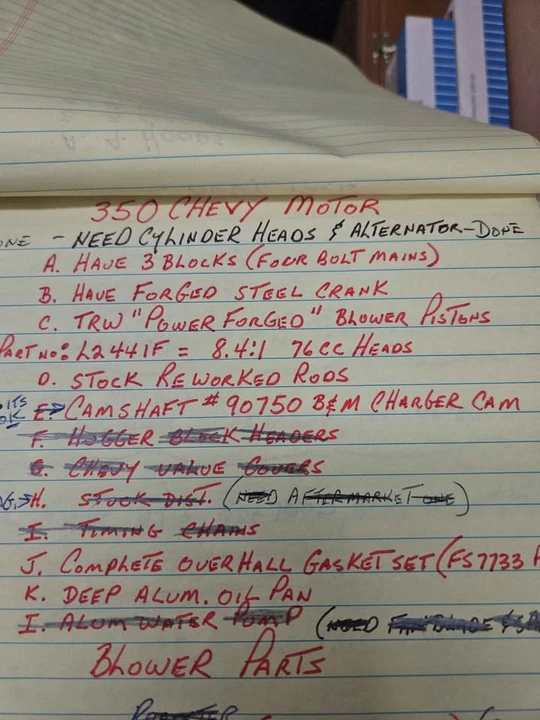 350 CHEVY MOTOR
ONE - NEED CYLINDER HEADS & ALTERNATOR-DONE
A. HAVE 3 BLOCKS (FOUR BOLT MAINS)
B. HAVE FORGED STEEL CRANK
C. TRW "POWER FORGED" BLOWER PISTONS
PART NO: L2441F = 8.4:1 76CC HEADS
D. STOCK REWORKED RODS
ITS OK E. CAMSHAFT # 90750 B&M CHARGER CAM
F. HUGGER BLOCK HEADERS
G. CHEVY VALVE COVERS
H. STOCK DIST. (NEED AFTERMARKET ONE)
I. TIMING CHAINS
J. COMPLETE OVERHALL GASKET SET (FS7733
K. DEEP ALUM. OIL PAN
I. ALUM WATER PUMP (NEED FAN BLADE &
BLOWER PARTS